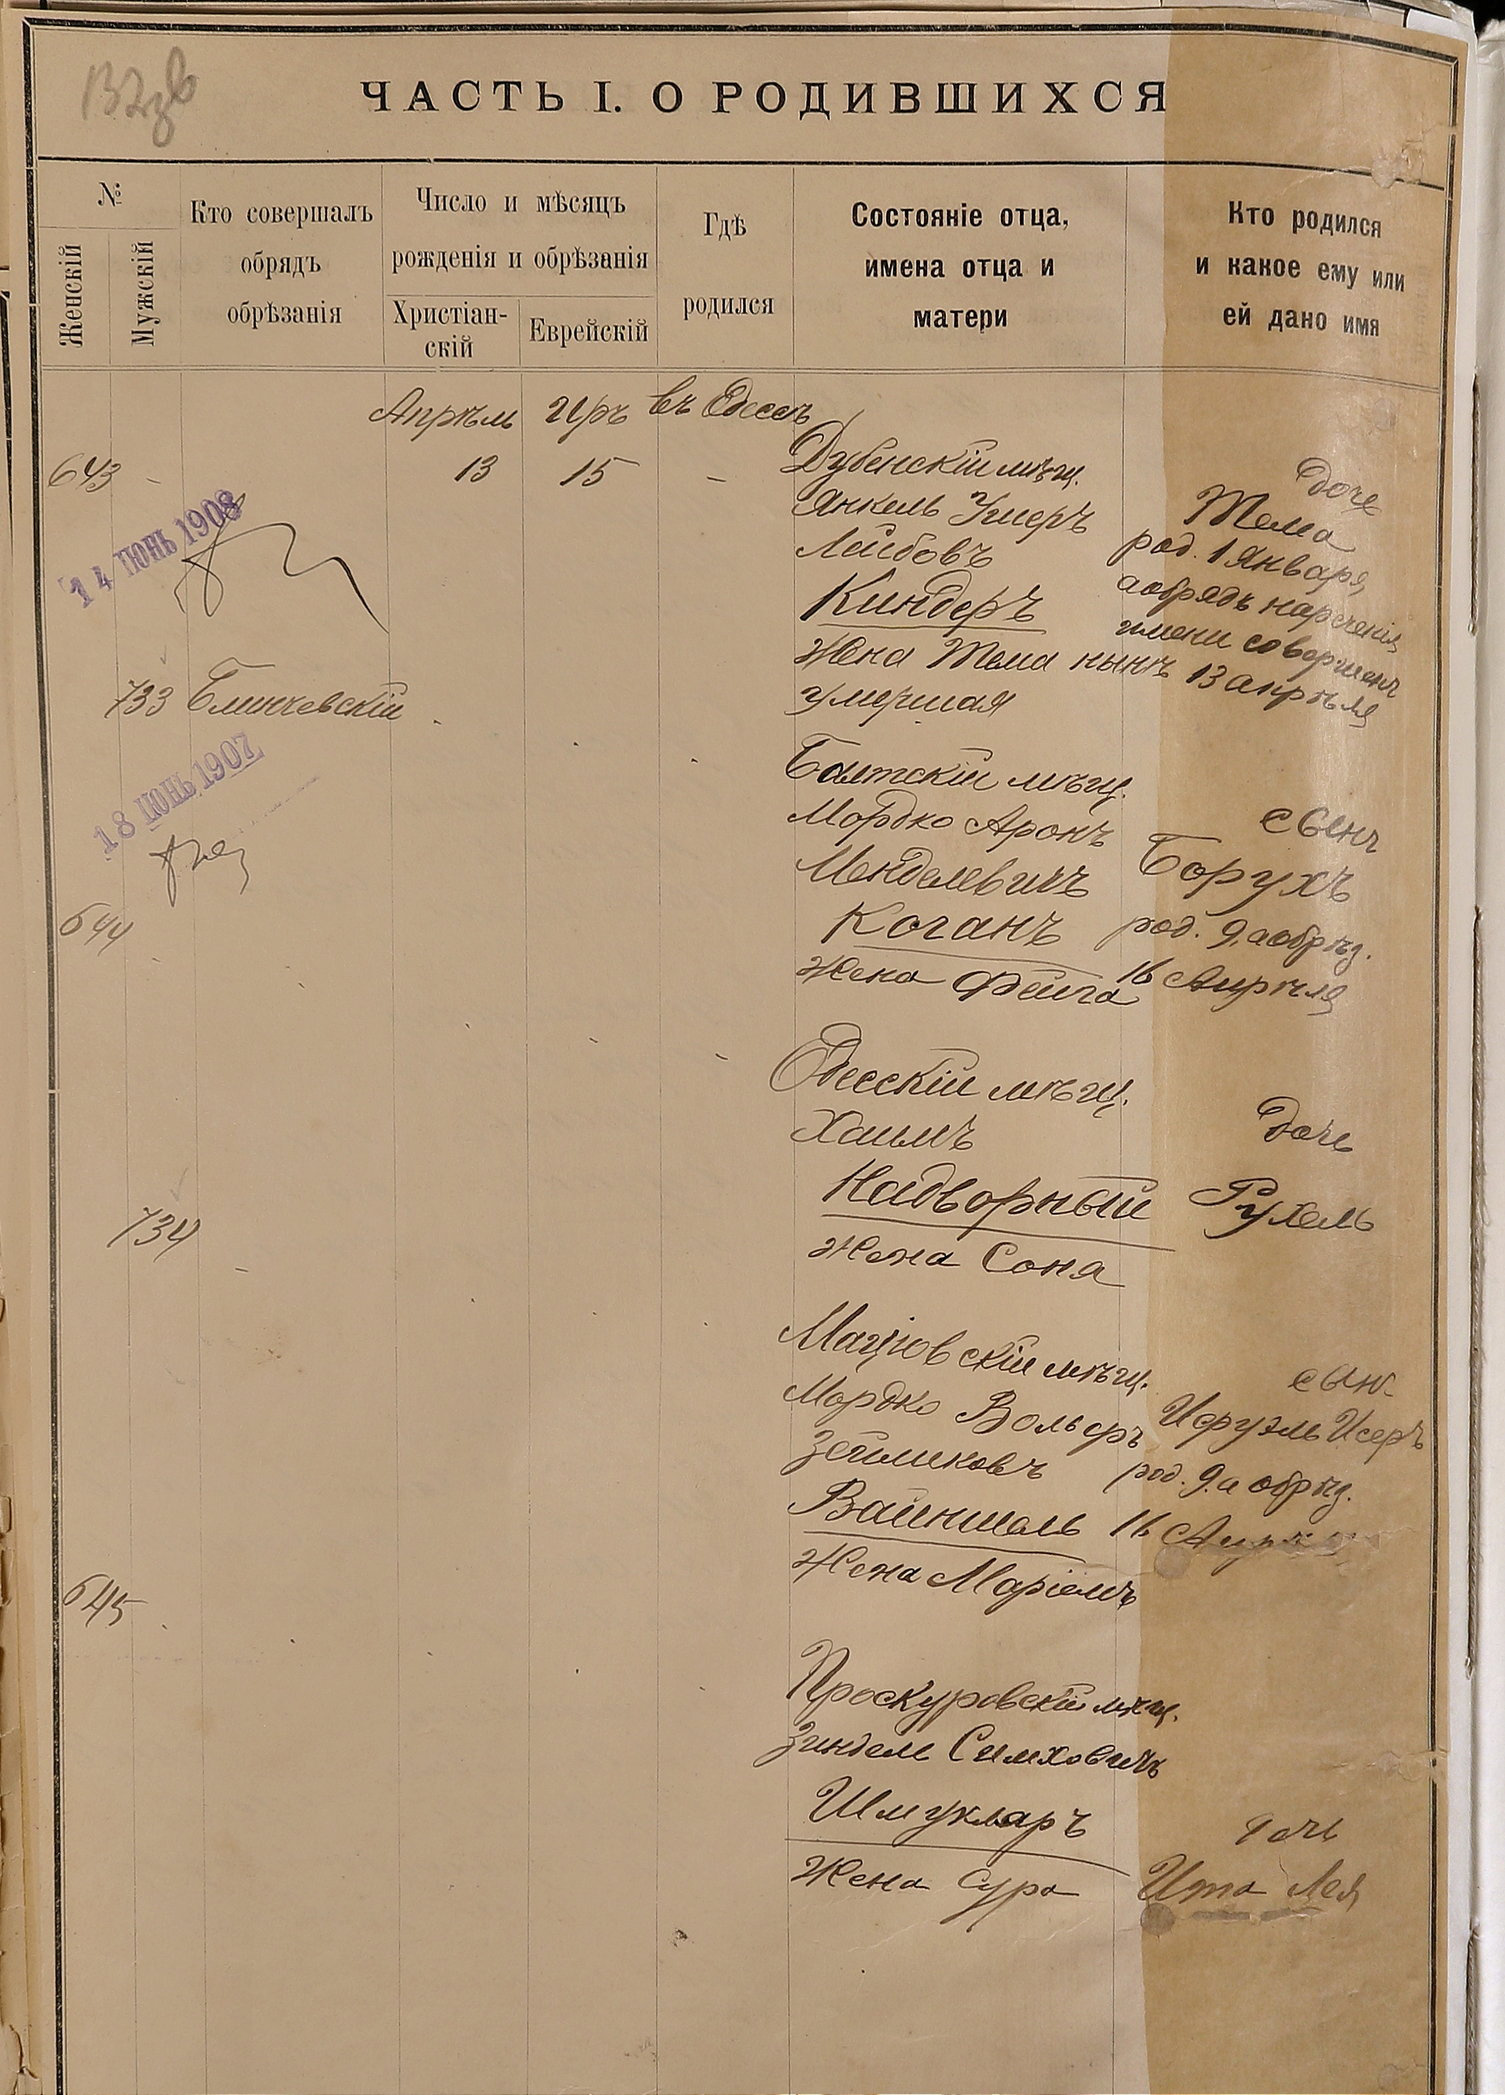 ЧАСТЬ I. О РОДИВШИХСЯ
№
Женскій
Мужскій
Кто совершалъ
обрядъ
обрѣзанія
Число и мѣсяцъ
рожденія и обрѣзанія
Христіан-
скій
Еврейскій
Гдѣ
родился
Состояніе отца,
имена отца и
матери
Кто родился
и какое ему или
ей дано имя
Апрѣль Иръ въ Одессѣ
643 - 13 15 -
14 ІЮНЬ 1908
Дубенскій мѣщ.
Янкель Умеръ
Лейбовъ
Киндеръ
Жена Тема нынѣ
умершая
дочь
Тема
род. 1 Января,
а обрядъ нареченія
имени совершенъ
13 апрѣля
733 Блинчевскій
18 ІЮНЬ 1907
Балтскій мѣщ.
Мордко Аронъ
Менделевичъ
Коганъ
Жена Фейга
сынъ
Борухъ
род. 9, а обрѣз.
16 Апрѣля
644
Одесскій мѣщ.
Хаимъ
Надворный
Жена Соня
дочь
Рухель
734
Маціовскій мѣщ.
Мордко Вольфъ
Зейликовъ
Вайншель
Жена Маріемъ
сынъ
Исруэль Исеръ
род. 9. а обрѣз.
16
645
Проскуровскій мѣщ.
Зиндель Симховичъ
Шмукларъ
Жена Сура
дочь
Ита Лея